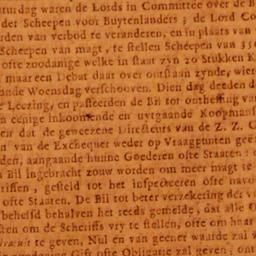 turdag waren de Lords in Committee over de B
der Scheepen voor Buytenlanders; de Lord Co
rden van verbod te veranderen, en in plaats van
Scheepen van magt, te stellen Scheepen van 35
ofte zoodanige welke in staat zyn 20 Stukken K
maar een Debat daar over ontstaan zynde, wier
ande Woensdag verschooven. Dien dag deeden d
e Leezing, en passeerden de Bil tot ontheffing van
n eenige inkoomende en uytgaande Koopman
en dat de geweezene Directeurs van de Z. Z. C
van de Exchequer weder op Vraagpunten gee
den, aangaande hunne Goederen ofte Staaten:
n Bil ingebracht zouw worden om meer magt te
rissen, gesteld tot het inspecteeren ofte navor
ofte Staaten. De Bil tot beter verzekering der v
behelsd behalven het reeds gemelde, dat alle O
ten om de Scheriffs vry te stellen, ofte om haar
te geven, Nul en van geener waarde zal
Gift ofte Obligatie zal geven, on